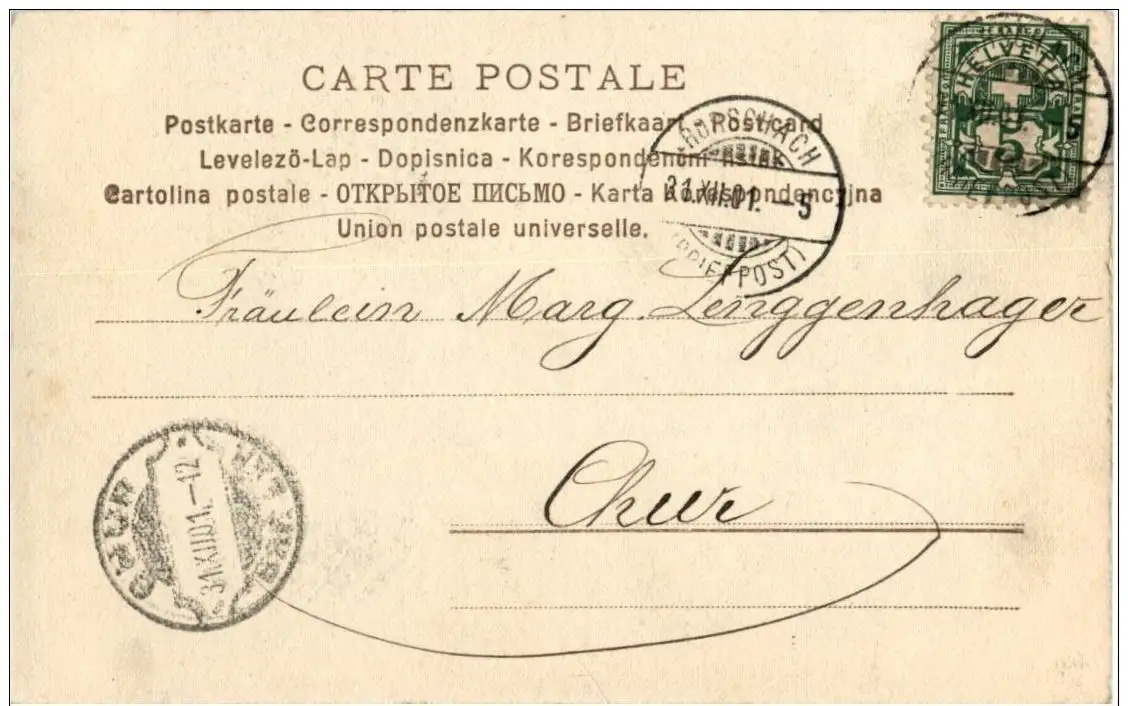 CARTE POSTALE
Postkarte - Correspondenzkarte - Briefkaart - Postcard
Levelező-Lap - Dopisnica - Korespondenční lístek
Cartolina postale - ОТКРЫТОЕ ПИСЬМО - Karta Korespondencyjna
Union postale universelle.
RORSCHACH
31.XII.01.-5
(BRIEFPOST)
HELVETIA
FRANCO
5
5
Fräulein Marg. Lenggenhager
Chur
CHUR
31.XII.01.-12